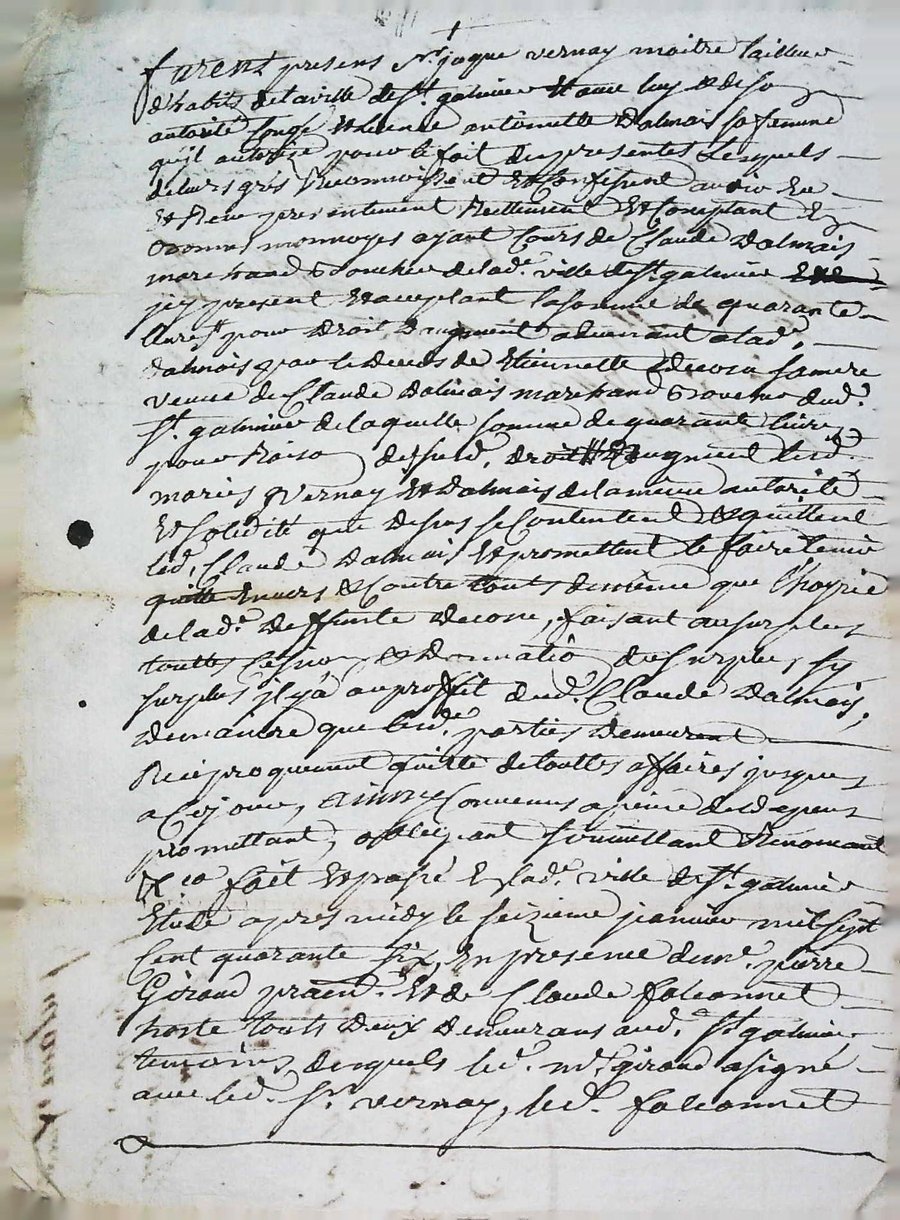 furent presens Sr. jaque vernay maitre tailleur
d'habits de la ville de St. galmier & avec luy & de so
autorité congé & licence antoinette Dalmais sa femme
quil autorise pour le fait des presentes Lesquels
de leurs grés Reconnoissent Et Confessent avoir Eu
& Receu presentement Reellement & Comptant En
bonnes monnoyes ayant Cours de Claude Dalmais
marchand boucher de lad. ville de St. galmier
jcy present & acceptant la somme de quarante
livres pour Droit D'augment advenant a lad.
Dalmais par le Deceds de Etiennette Decosu sa mere
veuve de Claude Dalmais marchand dud.
St. galmier de laquelle somme de quarante livres
pour Raiso desusd. droit D'augment lesd.
mariés Vernay & Dalmais de la meme autorité
& Solidité que Dessus se Contentent & quittent
led. Claude Dalmais & promettent le faire tenir
quitte Envers & Contre touts de meme que l'hoyrie
de lad. Deffunte faisant au surplus
touttes Cession & Donnatio du surplus sy
surplus il y a au proffit dud. Claude Dalmais,
De maniere que lesd. parties Demeurent
Reciproquement quitte de touttes affaires jusques
a Ce jour, ainsy Convenus a peine de Depens
promettant, obligeant soumettant Renonceant
& Ca fait & passé En lad. ville de St. galmier
Etude apres midy le seizieme janvier mil sept
Cent quarante six, En presence de me. pierre
Giraud & de Claude falconnet
hoste touts Deux Demeurans aud. St. galmier
temoins, desquels led. me. giraud a signé
avec led. Sr. vernay, led. falconnet